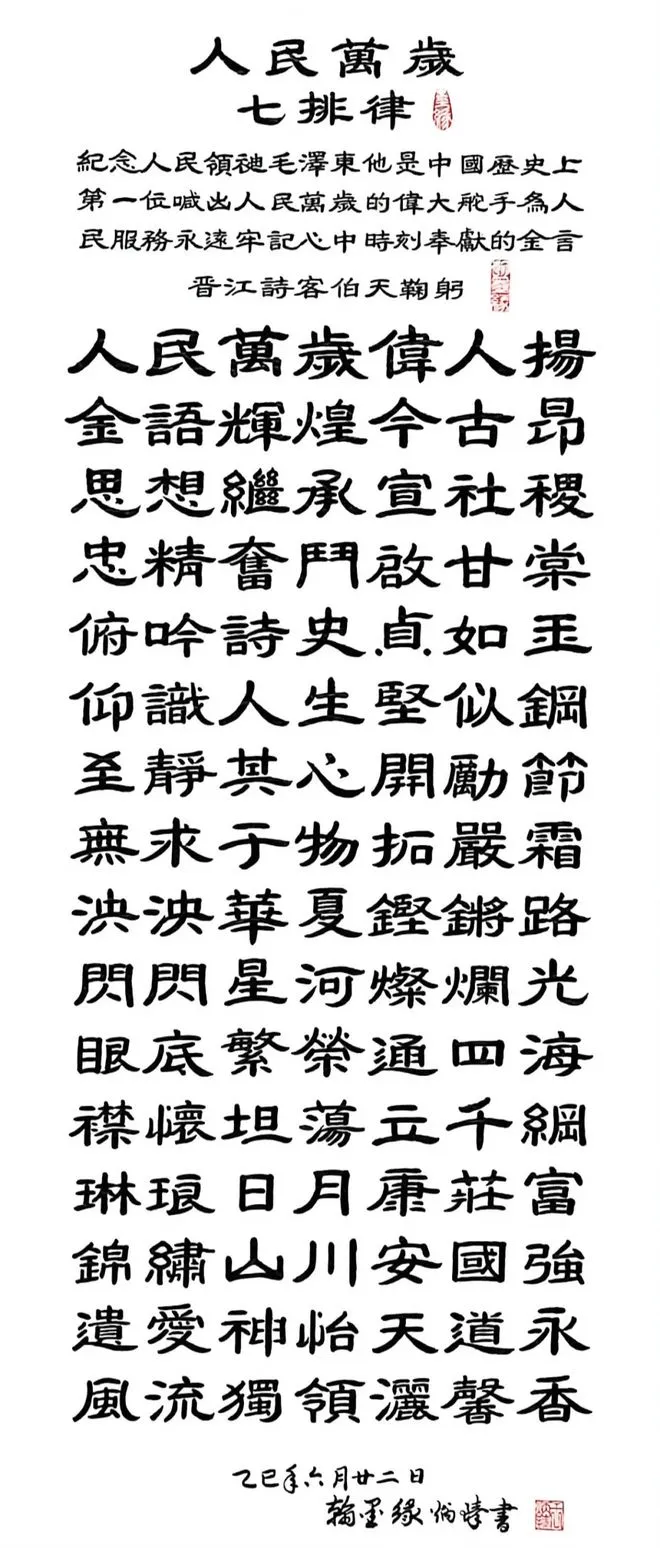 人民萬歲
七排律
紀念人民領袖毛澤東他是中國歷史上
第一位喊出人民萬歲的偉大舵手為人
民服務永遠牢記心中時刻奉獻的金言
晋江詩客伯天鞠躬
人民萬歲偉人揚
金語輝煌今古昂
思想繼承宣社稷
忠精奮鬥啟甘棠
俯吟詩史貞如玉
仰識人生堅似鋼
至靜其心開勵節
無求于物拓嚴霜
泱泱華夏鏗鏘路
閃閃星河燦爛光
眼底繁榮通四海
襟懷坦蕩立千綱
琳琅日月康莊富
錦繡山川安國強
遺愛神怡天道永
風流獨領灑馨香
乙巳年六月廿二日
翰墨緣炳烽書